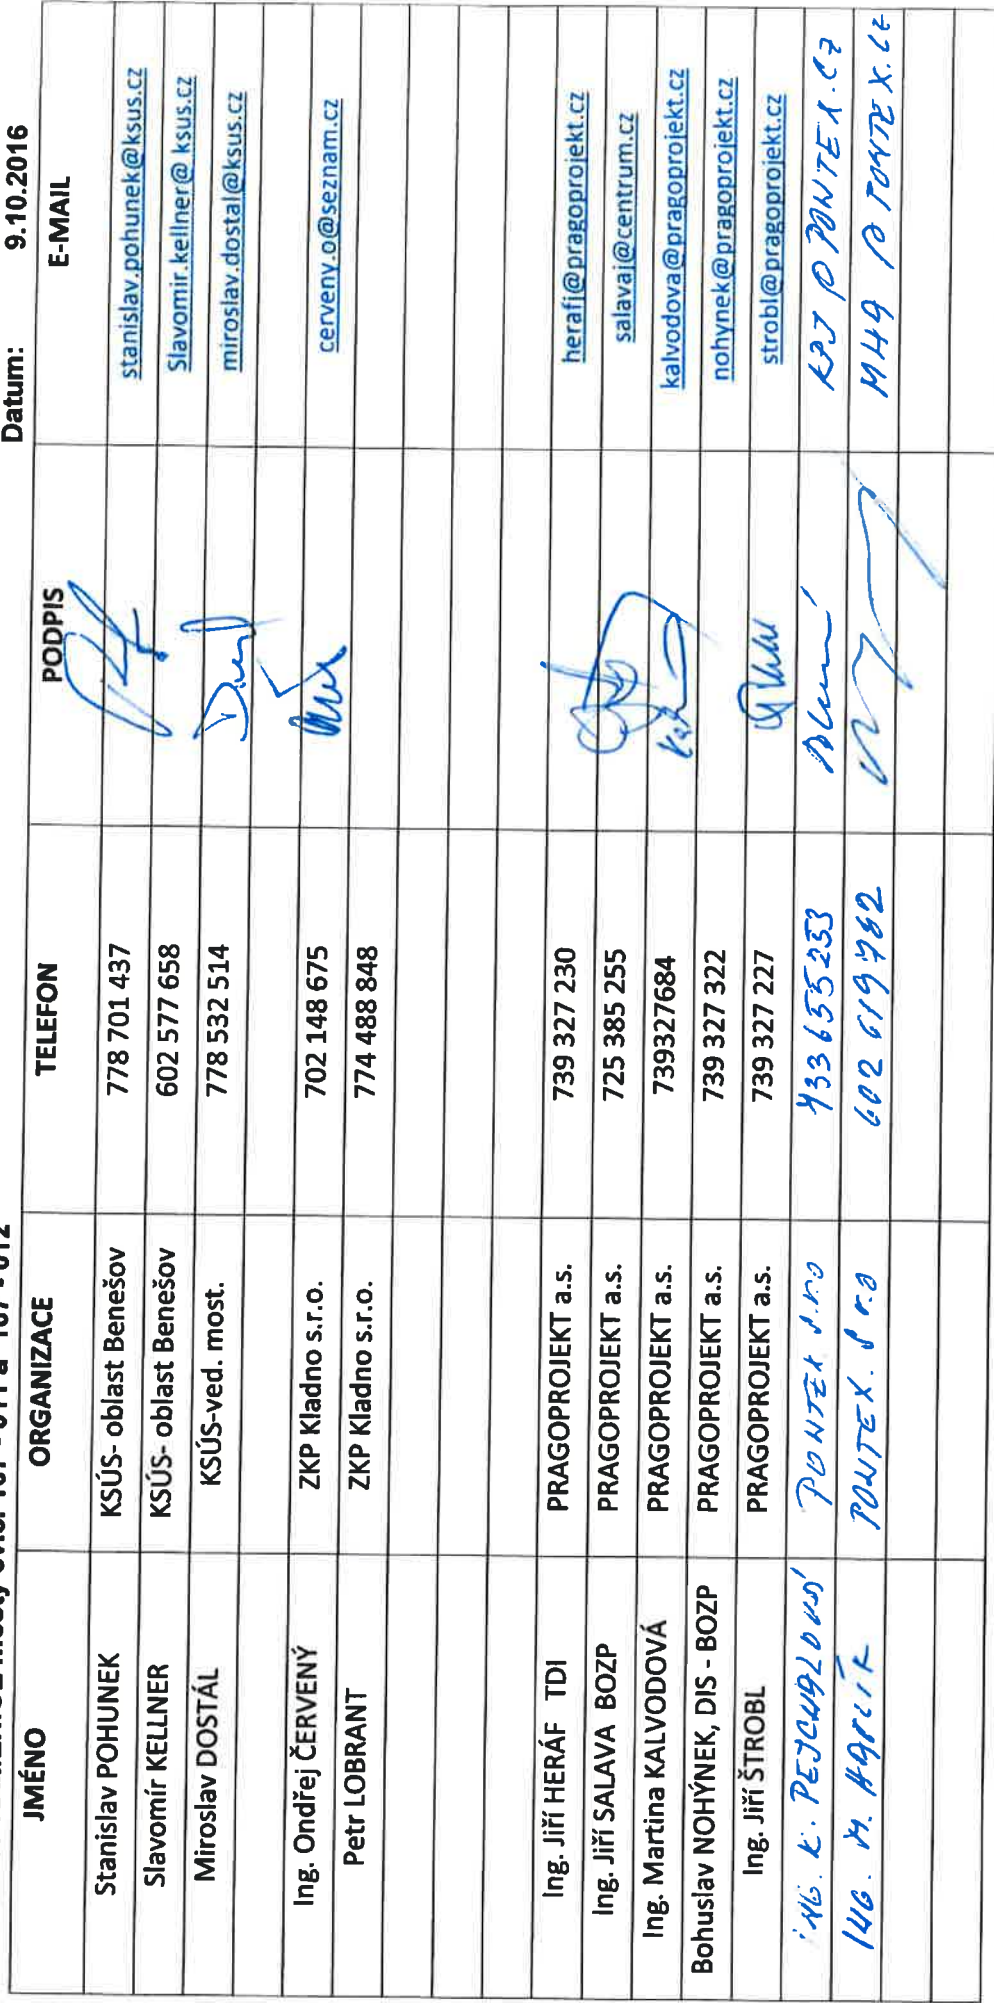 Datum: 9.10.2016
JMÉNO ORGANIZACE TELEFON PODPIS E-MAIL
Stanislav POHUNEK KSÚS- oblast Benešov 778 701 437 stanislav.pohunek@ksus.cz
Slavomír KELLNER KSÚS- oblast Benešov 602 577 658 Slavomir.kellner@ ksus.cz
Miroslav DOSTÁL KSÚS-ved. most. 778 532 514 miroslav.dostal@ksus.cz
Ing. Ondřej ČERVENÝ ZKP Kladno s.r.o. 702 148 675 cerveny.o@seznam.cz
Petr LOBRANT ZKP Kladno s.r.o. 774 488 848
Ing. Jiří HERÁF TDI PRAGOPROJEKT a.s. 739 327 230 herafi@pragoprojekt.cz
Ing. Jiří SALAVA BOZP PRAGOPROJEKT a.s. 725 385 255 salavaj@centrum.cz
Ing. Martina KALVODOVÁ PRAGOPROJEKT a.s. 739327684 kalvodova@pragoprojekt.cz
Bohuslav NOHÝNEK, DIS - BOZP PRAGOPROJEKT a.s. 739 327 322 nohynek@pragoprojekt.cz
Ing. Jiří ŠTROBL PRAGOPROJEKT a.s. 739 327 227 strobl@pragoprojekt.cz
ING. K. PEJCHALOVÁ PONTEX s.r.o 733655253 KPJ @ PONTEX.CZ
ING. M. HAVLÍK PONTEX. s r.o 602 619782 MHA @ PONTEX.CZ